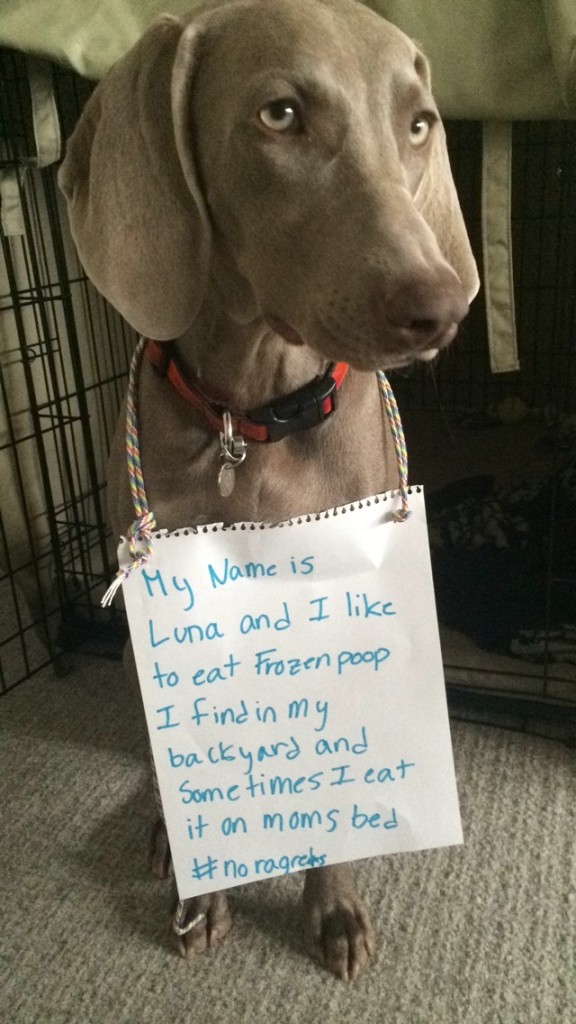 My Name is
Luna and I like
to eat Frozen poop
I find in my
backyard and
Sometimes I eat
it on moms bed
#noragrets